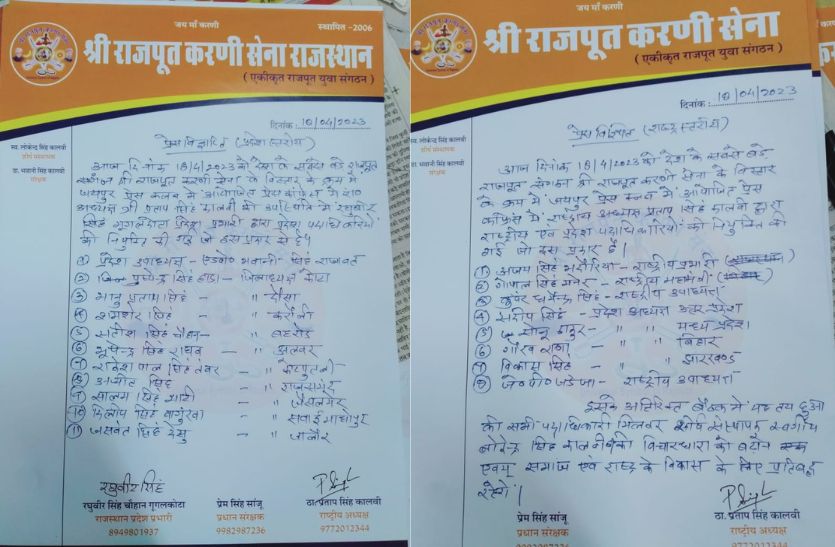 जय माँ करणी
स्थापित -2006
श्री राजपूत करणी सेना राजस्थान
( एकीकृत राजपूत युवा संगठन )
दिनांक : 18/04/2023
स्व. लोकेन्द्र सिंह कालवी
शीर्ष संस्थापक
डा. भवानी सिंह कालवी
संरक्षक
प्रेस विज्ञप्ति (प्रदेश स्तरीय)
आज दिनांक 18/4/2023 को देश के सबसे बडे राजपूत
संगठन श्री राजपूत करणी सेना के विस्तार के क्रम में
जयपुर प्रेस क्लब में आयोजित प्रेस कांफ्रेंस में
अध्यक्ष श्री प्रताप सिंह कालवी की उपस्थिति में रघुवीर
सिंह गुगलकोटा प्रदेश प्रभारी द्वारा प्रदेश पदाधिकारियों
की नियुक्ति की गई जो इस प्रकार से है।
① प्रदेश उपाध्यक्ष - एडवो० भवानी सिंह राजावत
② पुष्पेन्द्र सिंह हाडा - जिलाध्यक्ष कोटा
③ भानु प्रताप सिंह - " दौसा
④ रामशेर सिंह - " करौली
⑤ सतीश सिंह चौहान - " बहरोड
⑥ भूपेन्द्र सिंह राघव - " अलवर
⑦ राजेश पाल सिंह तंवर - " कोटपुतली
⑧ अमीत सिंह " राजसमंद
⑨ सालम सिंह भाटी - " जैसलमेर
⑩ दिलीप सिंह - " सवाई माधोपुर
⑪ जसवंत सिंह - " जालौर
रघुवीर सिंह
रघुवीर सिंह चौहान गुगलकोटा
राजस्थान प्रदेश प्रभारी
8949801937
प्रेम सिंह सांजू
प्रधान संरक्षक
9982987236
ठा.प्रताप सिंह कालवी
राष्ट्रीय अध्यक्ष
9772012344
जय माँ करणी
श्री राजपूत करणी सेना
( एकीकृत राजपूत युवा संगठन )
दिनांक : 18/04/2023
स्व. लोकेन्द्र सिंह कालवी
शीर्ष संस्थापक
डा. भवानी सिंह कालवी
संरक्षक
प्रेस विज्ञप्ति (राष्ट्र स्तरीय)
आज दिनांक 18/4/2023 को देश के सबसे बडे
राजपूत संगठन श्री राजपूत करणी सेना के विस्तार
के क्रम में जयपुर प्रेस क्लब में आयोजित प्रेस
कांफ्रेंस में राष्ट्रीय अध्यक्ष प्रताप सिंह कालवी द्वारा
राष्ट्रीय एवं प्रदेश पदाधिकारियों की नियुक्ति की
गई जो इस प्रकार है।
① अजय सिंह भदौरिया - राष्ट्रीय प्रभारी
② गोपाल सिंह - राष्ट्रीय महामंत्री
③ कुंवर धर्मेन्द्र सिंह - राष्ट्रीय उपाध्यक्ष
④ संदीप सिंह - प्रदेश अध्यक्ष उत्तर प्रदेश
⑤ सोनू ठाकुर - " " मध्य प्रदेश
⑥ गौरव राणा - " " बिहार
⑦ विकास सिंह - " " झारखण्ड
⑧ जे०पी० जडेजा - राष्ट्रीय उपाध्यक्ष
इसके अतिरिक्त बैठक में यह तय हुआ
की सभी पदाधिकारी मिलकर शीर्ष संस्थापक स्वर्गीय
लोकेन्द्र सिंह कालवी की विचारधारा को
एवम् समाज एवं राष्ट्र के विकास के लिए प्रतिबद्ध
रहेंगे।
प्रेम सिंह सांजू
प्रधान संरक्षक
9982987236
ठा. प्रताप सिंह कालवी
राष्ट्रीय अध्यक्ष
9772012344